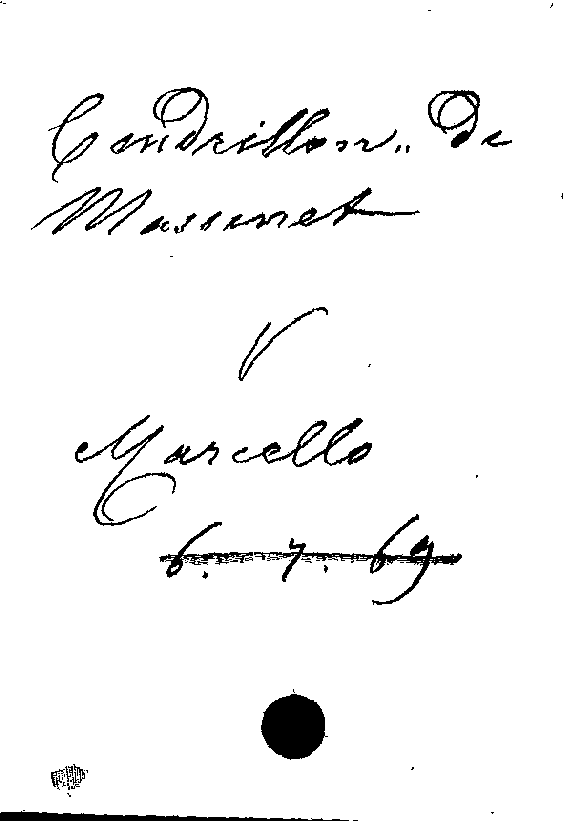 Cendrillon„ de
Massenet
V
Marcello
6. 7. 69